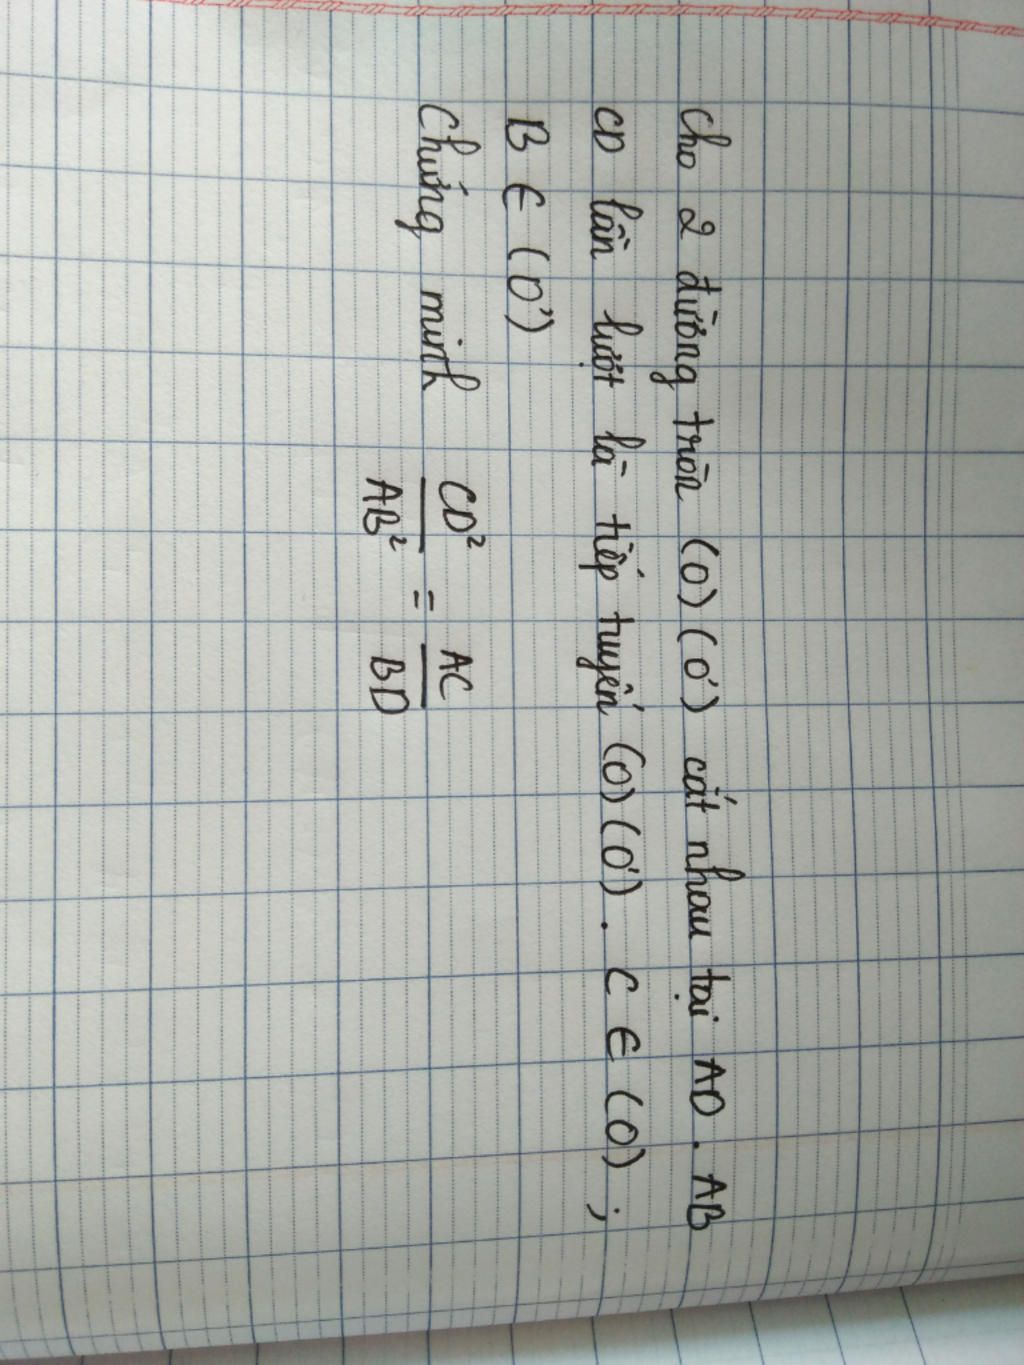 Cho 2 đường tròn (O) (O') cắt nhau tại AD. AB
CD lần lượt là tiếp tuyến (O) (O'). C ∈ (O) ;
B ∈ (O')
Chứng minh CD²/AB² = AC/BD